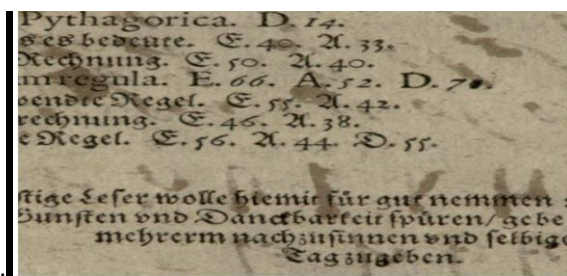 Pythagorica. D. 14.
s es bedeute. E. 40. A. 33.
Rechnung. E. 50. A. 40.
regula. E. 66. A. 52. D. 70.
Regel. E. 55. A. 42.
rechnung. E. 46. A. 38.
e Regel. E. 56. A. 44. D. 55.
stige Leser wolle hiemit für gut nemmen
Gunsten vnd Danckbarkeit spüren/ gebe
mehrerm nachzusinnen vnd selbige
Tag zugeben.